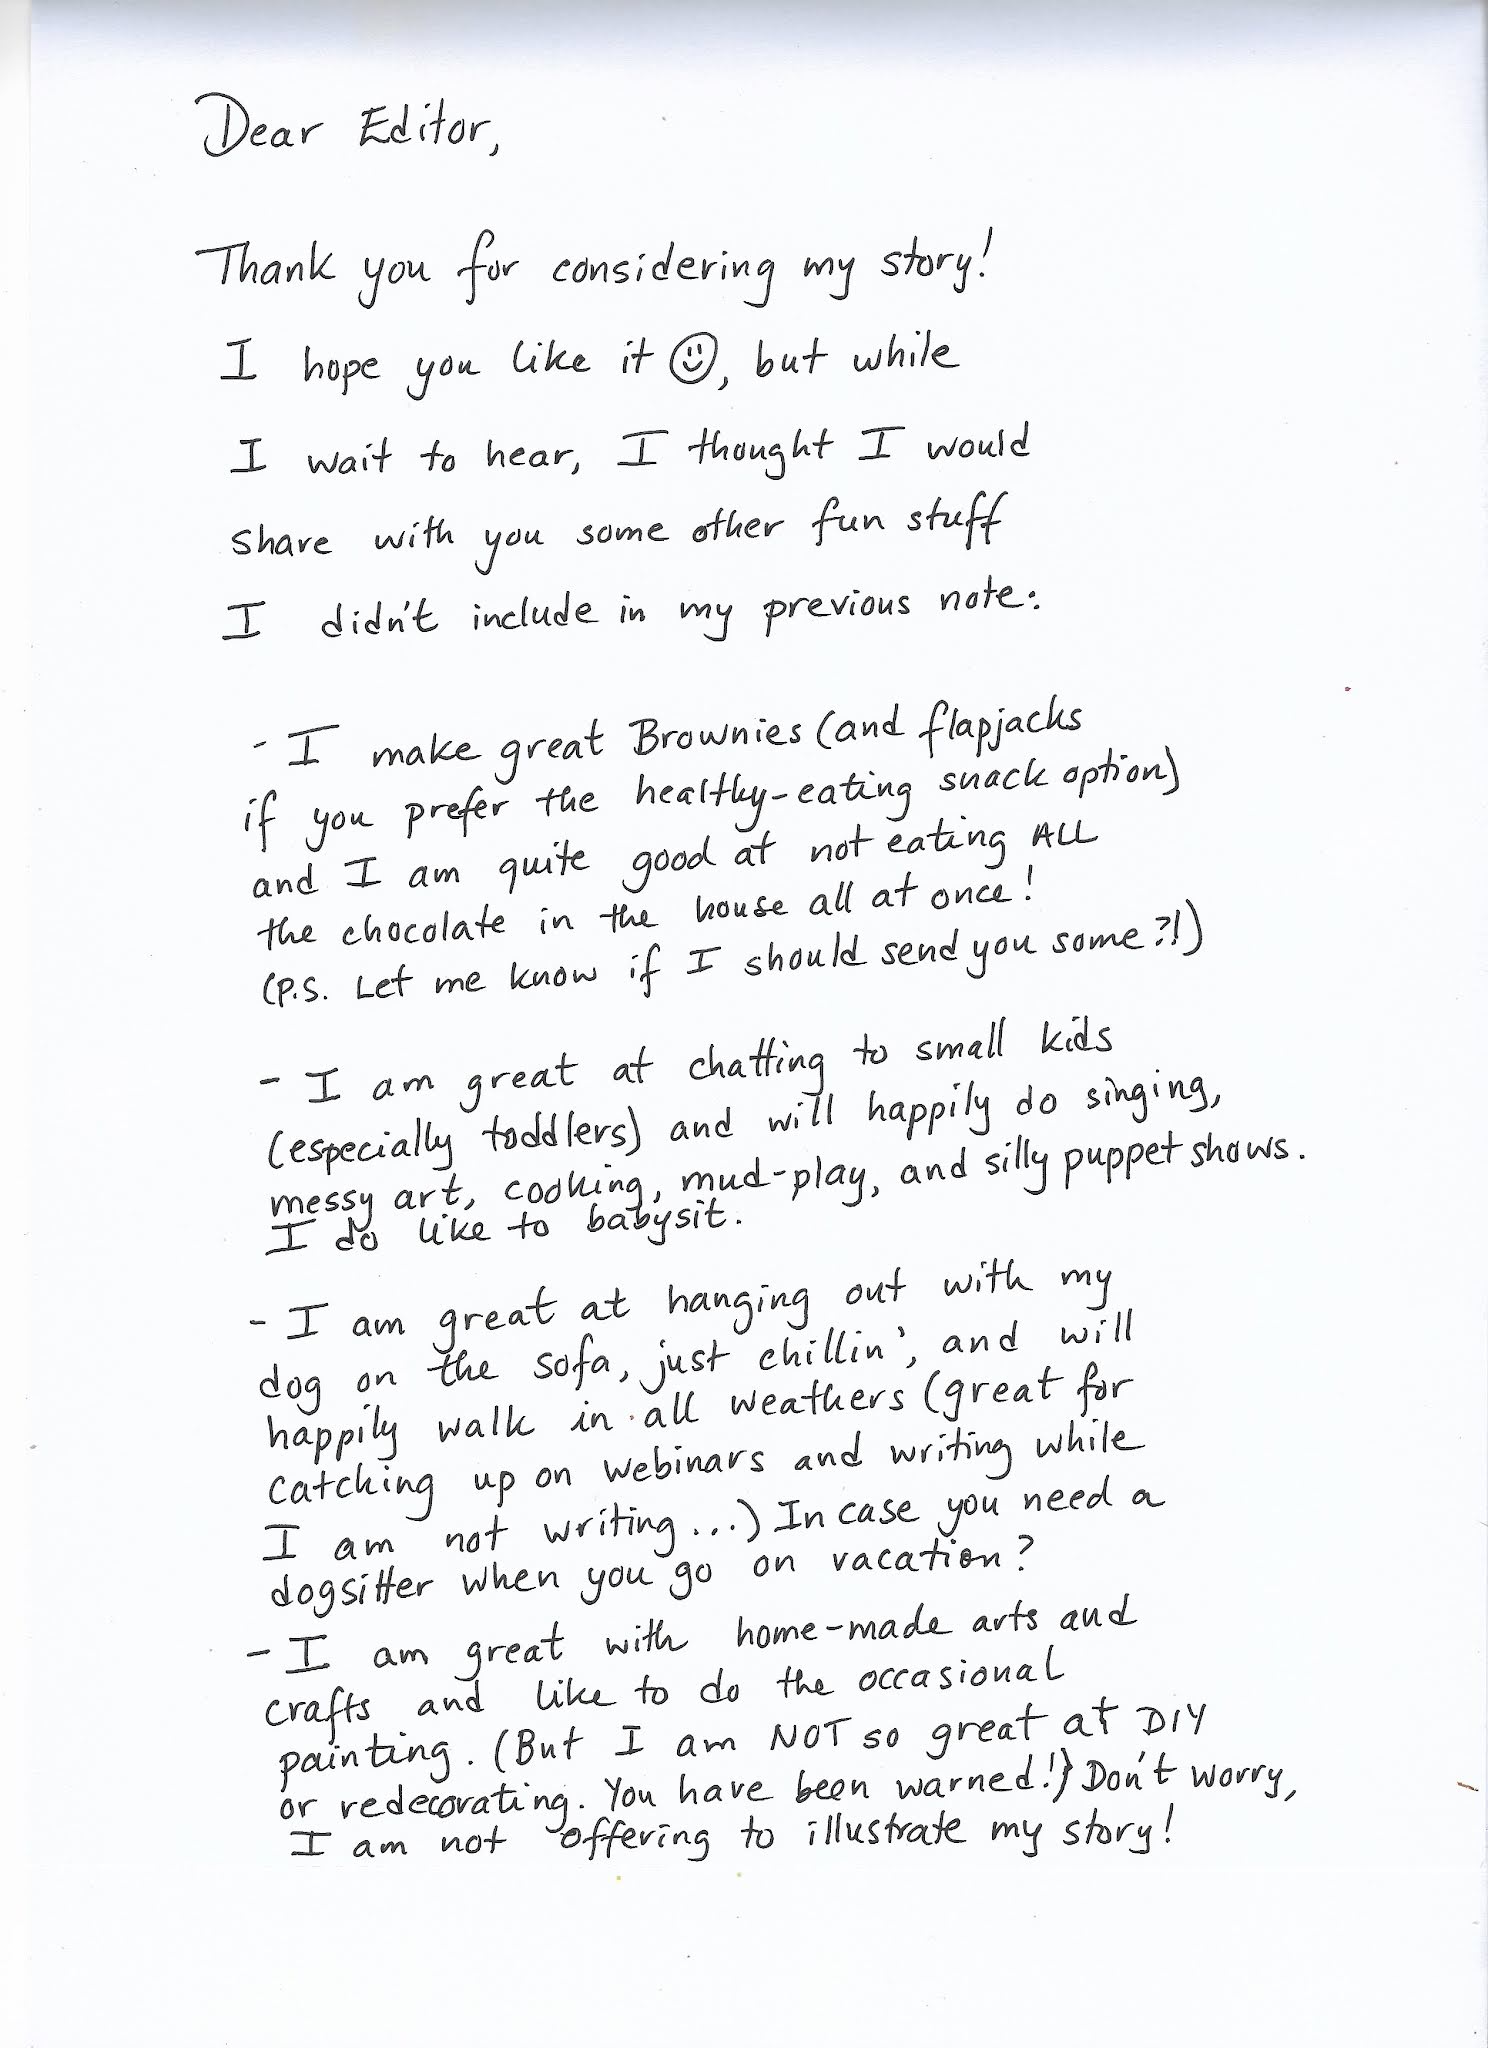 Dear Editor,
Thank you for considering my story!
I hope you like it ☺, but while
I wait to hear, I thought I would
share with you some other fun stuff
I didn't include in my previous note:
- I make great Brownies (and flapjacks
if you prefer the healthy-eating snack option)
and I am quite good at not eating ALL
the chocolate in the house all at once!
(P.S. Let me know if I should send you some?!)
- I am great at chatting to small kids
(especially toddlers) and will happily do singing,
messy art, cooking, mud-play, and silly puppet shows.
I do like to babysit.
- I am great at hanging out with my
dog on the sofa, just chillin', and will
happily walk in all weathers (great for
catching up on webinars and writing while
I am not writing...) In case you need a
dogsitter when you go on vacation?
- I am great with home-made arts and
crafts and like to do the occasional
painting. (But I am NOT so great at DIY
or redecorating. You have been warned!) Don't worry,
I am not offering to illustrate my story!